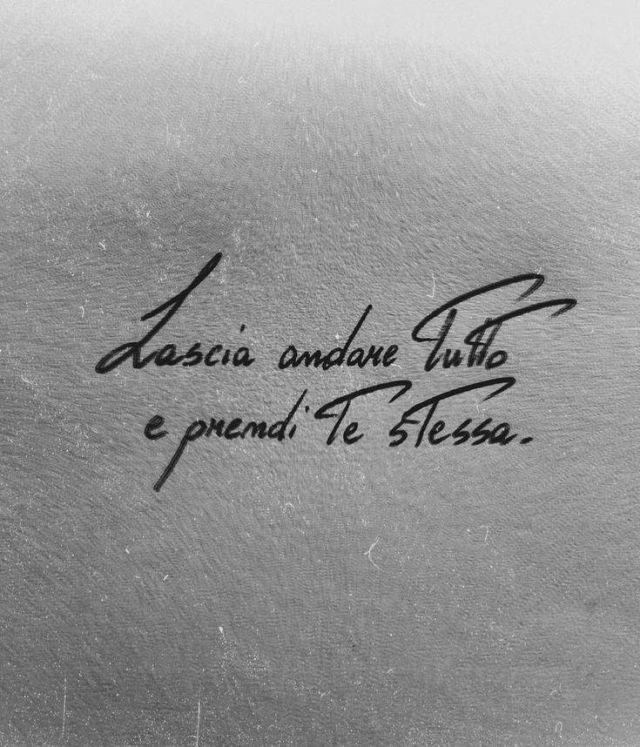 Lascia andare Tutto
e prendi Te sTessa.